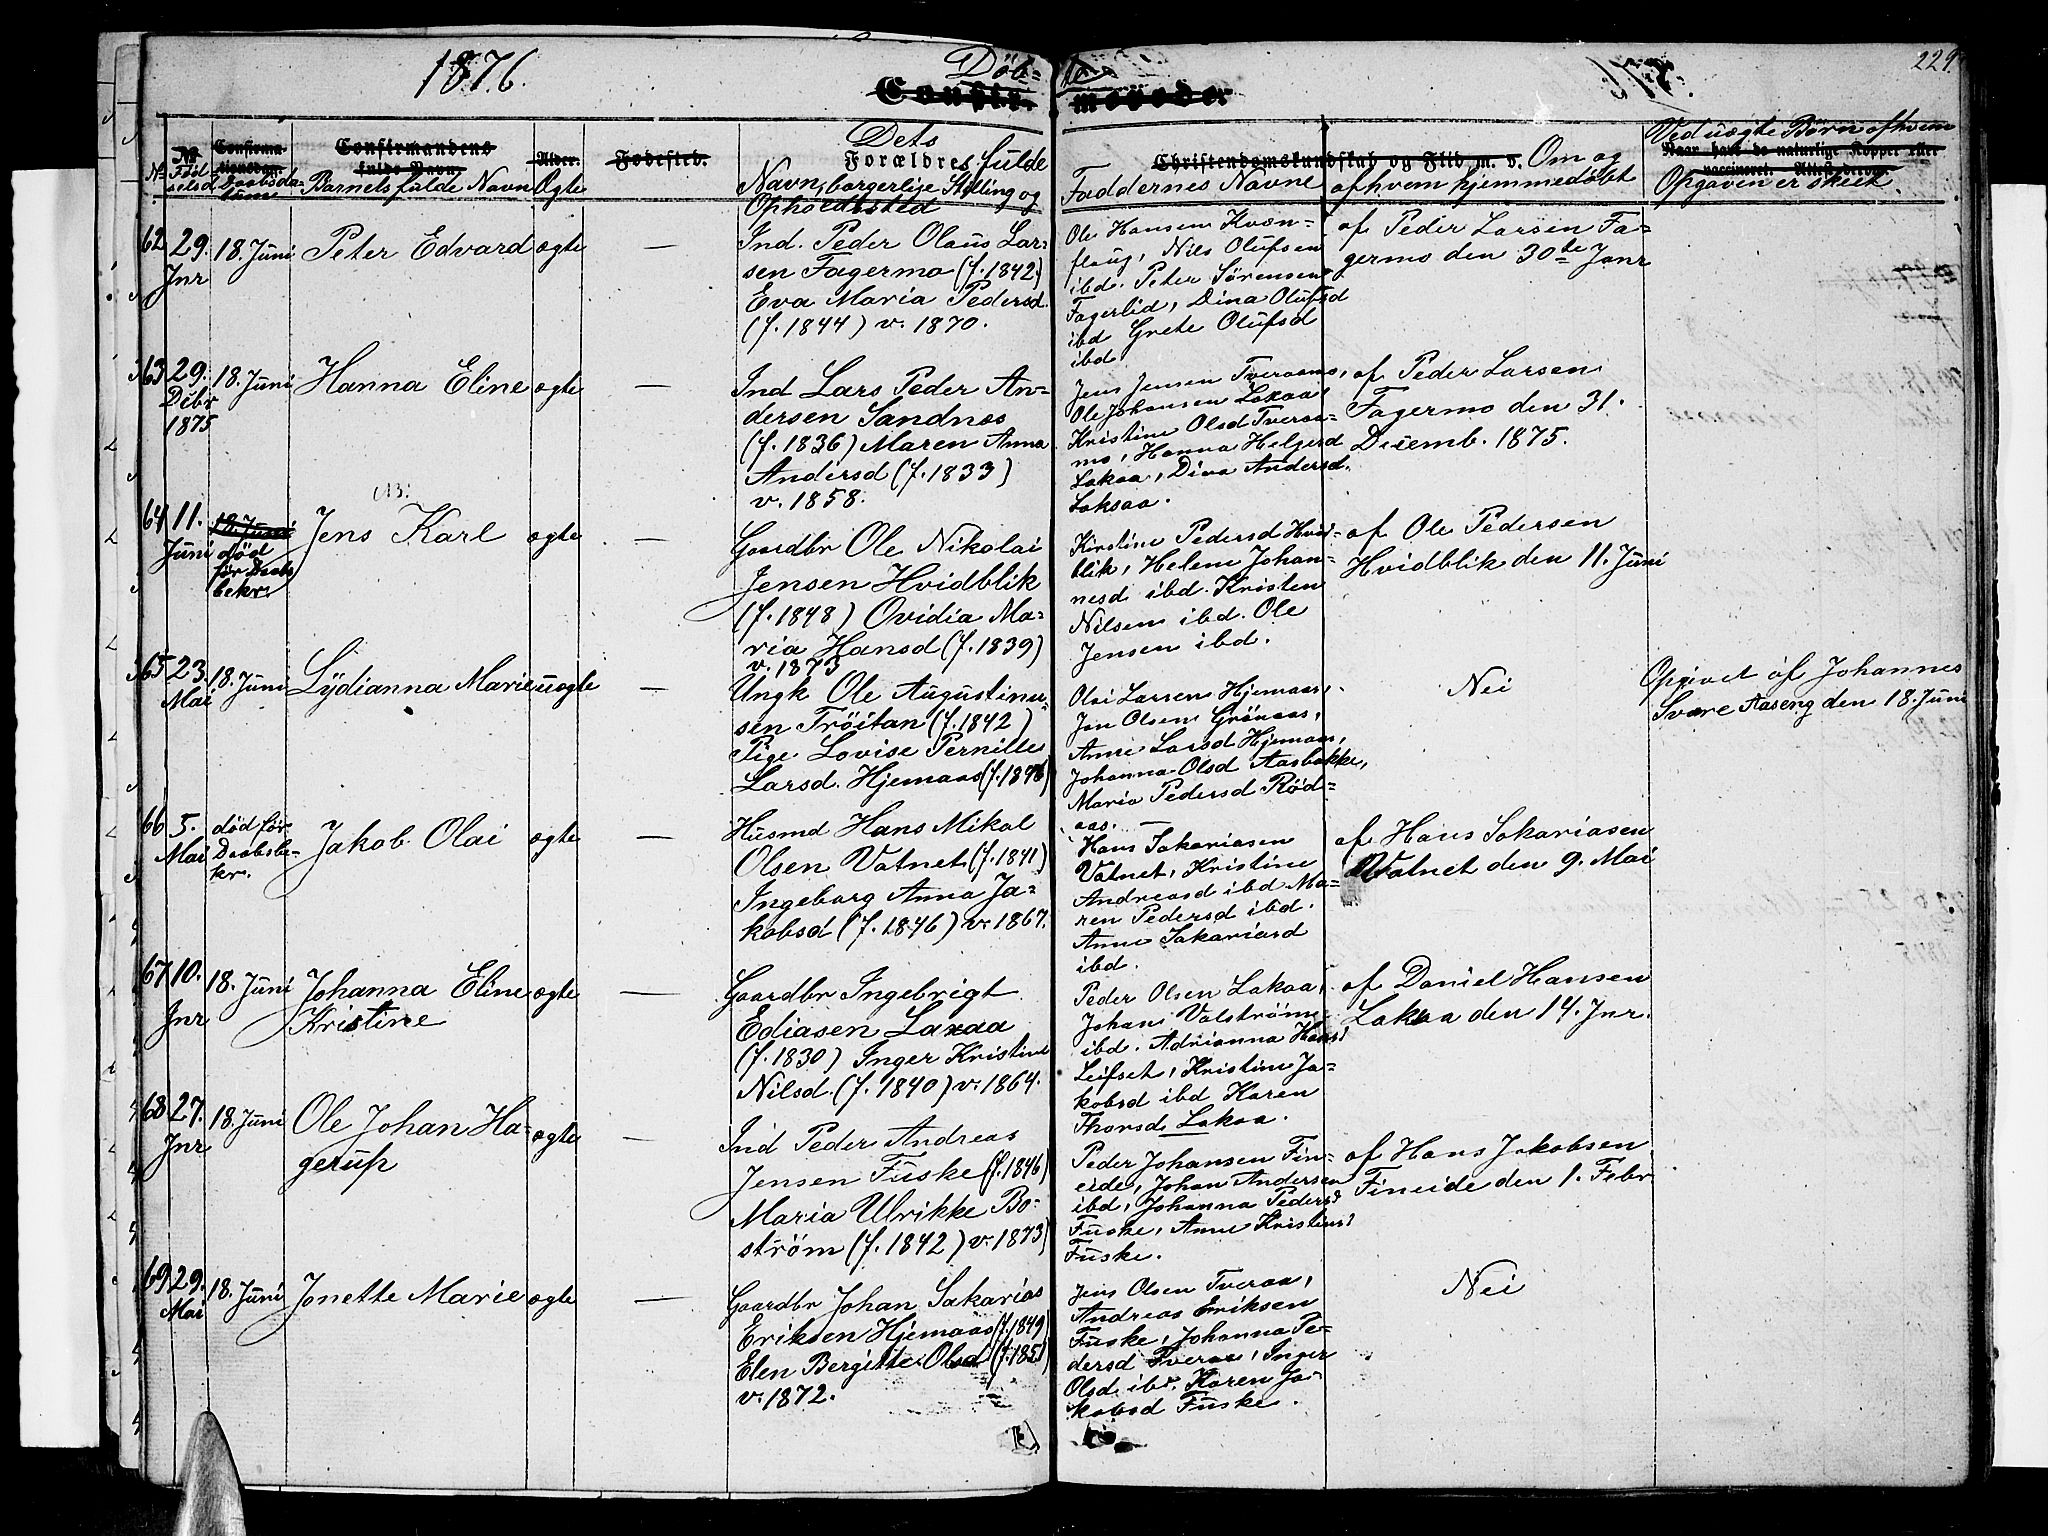 1876.
Döb-
te
Confir-
merede.
229
No
No
Fød
selsd
Confirma-
tionsdag.
Daabsda-
tum
Confirmandens
fulde Navn.
Barnets fulde Navn
Alder.
Ægte
Fødested.
Dets
Forældres fulde
Navn, borgerlige Stilling og
Opholdssted
Faddernes Navne
Christendomskundskab og Flid m. v. Om og
af hvem hjemmedøbt
Ved uægte Børn af hvem
Naar havt de naturlige Kopper eller
vaccineret. Attest derom.
Opgaven er skeet.
62
29.
Jnr
18. Juni
Peter Edvard
ægte
—
Ind. Peder Olaus Lar-
sen Fagermo (f. 1842)
Eva Maria Pedersd.
(f. 1844) v. 1870.
Ole Hansen Kvæn-
flaug, Nils Olufsen
ibd. Peter Sørensen
Fagerlid, Dina Olufsd
ibd Grete Olufsd
ibd.
af Peder Larsen Fa-
germo den 30te Janr
63
29.
Debr
1875
18. Juni
Hanna Eline
ægte
—
Ind Lars Peder An-
dersen Sandnes
(f. 1836) Maren Anna
Andersd (f. 1833)
v. 1858.
Jens Jensen Tveraamo,
Ole Johansen Laxaa,
Kristine Olsd Tveraa-
mo, Hanna Helgesd
Laxaa, Dina Andersd.
Laksaa.
af Peder Larsen
Fagermo den 31.
Decemb. 1875.
64
11.
Juni
18. Juni
død
før Daabs
bekr.
Jens Karl
ægte
—
Gaardbr Ole Nikolai
Jensen Hvidblik
(f. 1848) Ovidia Ma-
ria Hansd (f. 1839)
v. 1873
Kirstine Pedersd Hvid-
blik, Helene Johan-
nesd ibd. Kristen
Nilsen ibd. Ole
Jensen ibd.
af Ole Pedersen
Hvidblik den 11. Juni
65
23.
Mai
18. Juni
Lydianna Marie
uægte
—
Ungk Ole Augustinu-
sen Tröitan (f. 1842)
Pige Lovise Pernille
Larsd. Hjemaas
Olai Larsen Hjemaas,
Jan Olsen Grönaas,
Anne Larsd Hjemaas,
Johanna Olsd Aasbakke,
Maria Pedersd Röd-
aas. —
Nei
Opgivet af Johannes
Svare Aaseng den 18. Juni
66
5.
Mai
død før
Daabsbe-
kr.
Jakob Olai
ægte
—
Husmd Hans Mikal
Olsen Vatnet (f. 1841)
Ingeborg Anna Ja-
kobsd (f. 1846) v. 1867.
Hans Sakariasen
Vatnet, Kristine
Andreasd ibd Ma-
ren Pedersd ibd.
Anne Sakariasd
ibd.
af Hans Sakariasen
Vatnet den 9. Mai
67
10.
Jnr
18. Juni
Johanna Eline
Kristine
ægte
—
Gaardbr Ingebrigt
Ediasen Laxaa
(f. 1830) Inger Kristine
Nilsd. (f. 1840) v. 1864.
Peder Olsen Lakaa,
Johans Valström
ibd. Adrianna Hansd
Leifset, Kristine Ja-
kobsd ibd Karen
Thorsd. Laksaa.
af Daniel Hansen
Laksaa den 14. Jnr.
68
27.
Jnr
18. Juni
Ole Johan Ha-
gerup
ægte
—
Ind Peder Andreas
Jensen Fuske (f. 1846)
Maria Ulrikke Bo-
ström (f. 1842) v. 1873)
Peder Johansen Fin-
eide, Johan Andersen
ibd, Johanna Pedersd
Fuske, Anne Kristine
Fuske.
af Hans Jakobsen
Fineide den 1. Febr
69
29.
Mai
18. Juni
Jonette Marie
ægte
—
Gaardbr Johan Sakarias
Eriksen Hjemaas (f. 1849)
Elen Bergitte Olsd (f. 185
v. 1872.
Jens Olsen Tveraa,
Andreas Eriksen
Fuske, Johanna Pe-
dersd Tveraa, Inger
Olsd ibd. Karen Ja-
kobsd Fuske.
Nei